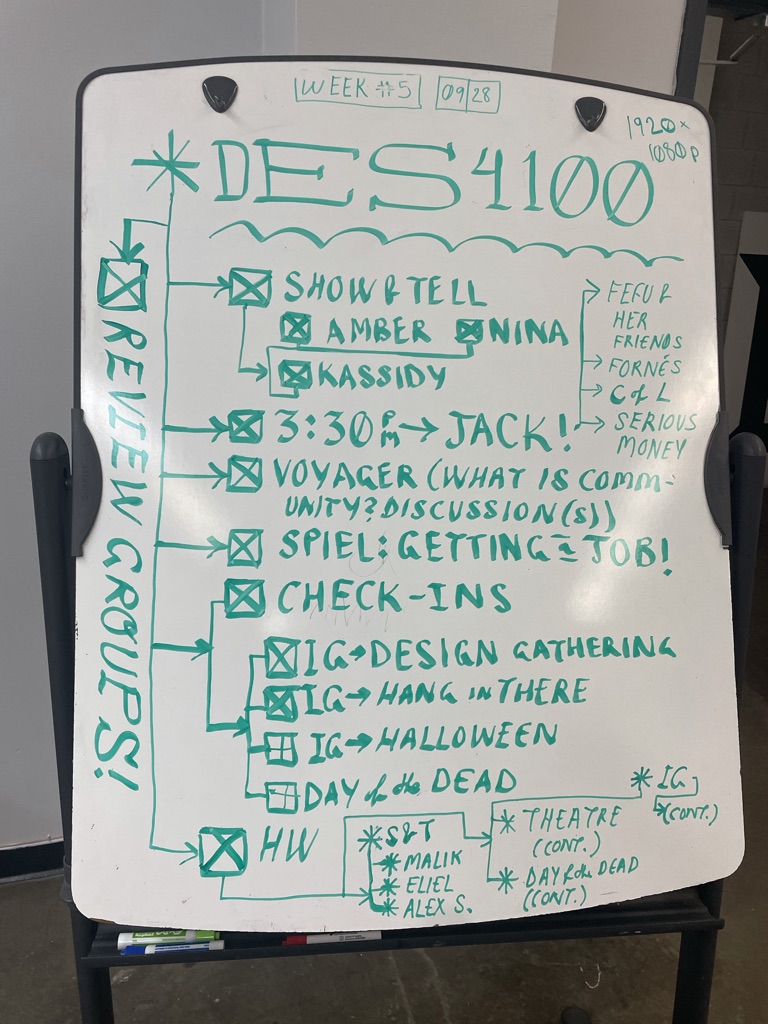 WEEK #5 09/28
1920x
1080p
* DES4100
REVIEW GROUPS!
SHOW & TELL
AMBER NINA
KASSIDY
3:30 PM → JACK!
→ FEFU &
HER
FRIENDS
→ FORNÉS
→ C of L
→ SERIOUS
MONEY
VOYAGER (WHAT IS COMM-
UNITY? DISCUSSION(S))
SPIEL: GETTING A JOB!
CHECK-INS
IG → DESIGN GATHERING
IG → HANG IN THERE
IG → HALLOWEEN
DAY of the DEAD
HW
* S&T
* MALIK
* ELIEL
* ALEX S.
* THEATRE
(CONT.)
* DAY of the DEAD
(CONT.)
* IG
→ (CONT.)